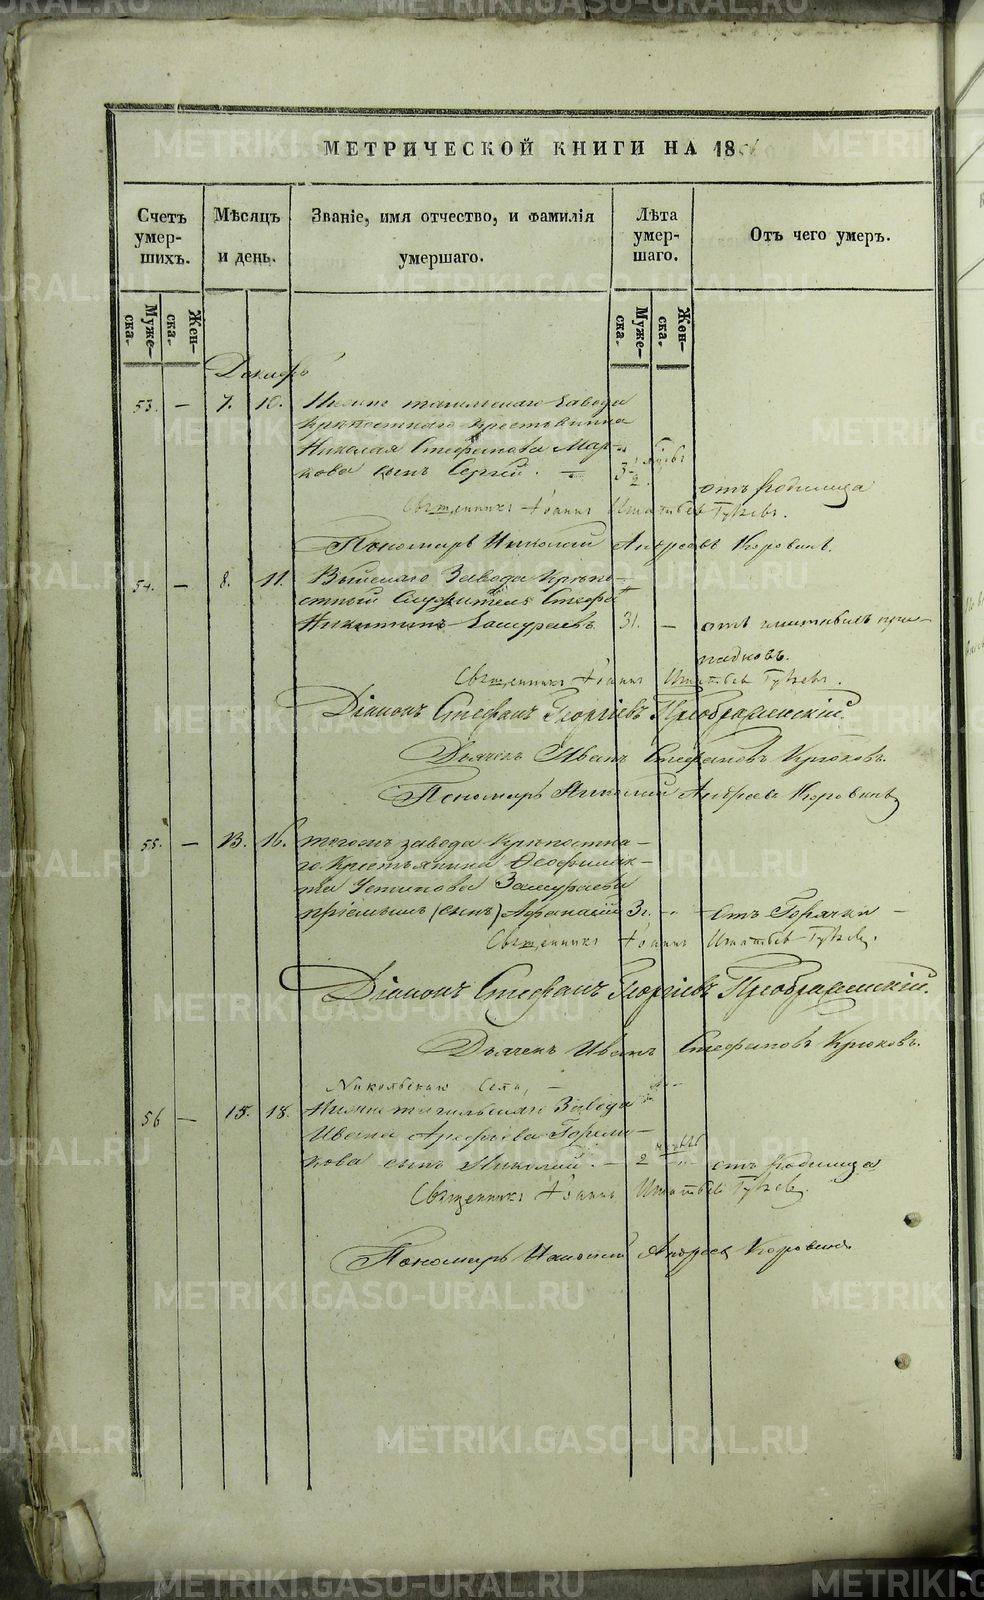 МЕТРИЧЕСКОЙ КНИГИ НА 18
Счетъ умер-шихъ.
Мѣсяцъ и день.
Званіе, имя отчество, и фамилія умершаго.
Лѣта умер-шаго.
Отъ чего умеръ.
Муже-ска.
Жен-ска.
Муже-ска.
Жен-ска.
Декабрь
53. — 7. 10. Нижне тагильскаго завода
крѣпостнаго крестьянина
Николая Стефанова Мар-
кова сынъ Сергій. 3 1/2
отъ Родимца
Священникъ Іоаннъ Игнатьевъ
Пономарь Николай Андреевъ Коровинъ.
54. — 8. 11. Выйскаго Завода крѣпо-
стный Служитель Стефа
Никитинъ 31. — отъ
падковъ.
Священникъ Іоаннъ Игнатьевъ
Діаконъ Стефанъ Георгіевъ Преображенскій.
Дьячекъ Иванъ Стефановъ Крюковъ.
Пономарь Николай Андреевъ Коровинъ
55. — 13. 16. тогожъ завода крѣпостна-
го крестьянина Ѳеофилак-
та Устинова
пріемышъ (сынъ) Афанасій 3 г. отъ Горячки
Священникъ Іоаннъ Игнатьевъ
Діаконъ Стефанъ Георгіевъ Преображенскій.
Дьячекъ Иванъ Стефановъ Крюковъ.
Никольскаго Села,
56 — 15. 18. Нижнетагильскаго Завода
Ивана Арефьева Горяно-
кова сынъ Николай. — 2 отъ Родимца
Священникъ Іоаннъ Игнатьевъ
Пономарь Николай Андреев Коровинъ
METRIKI.GASO-URAL.RU